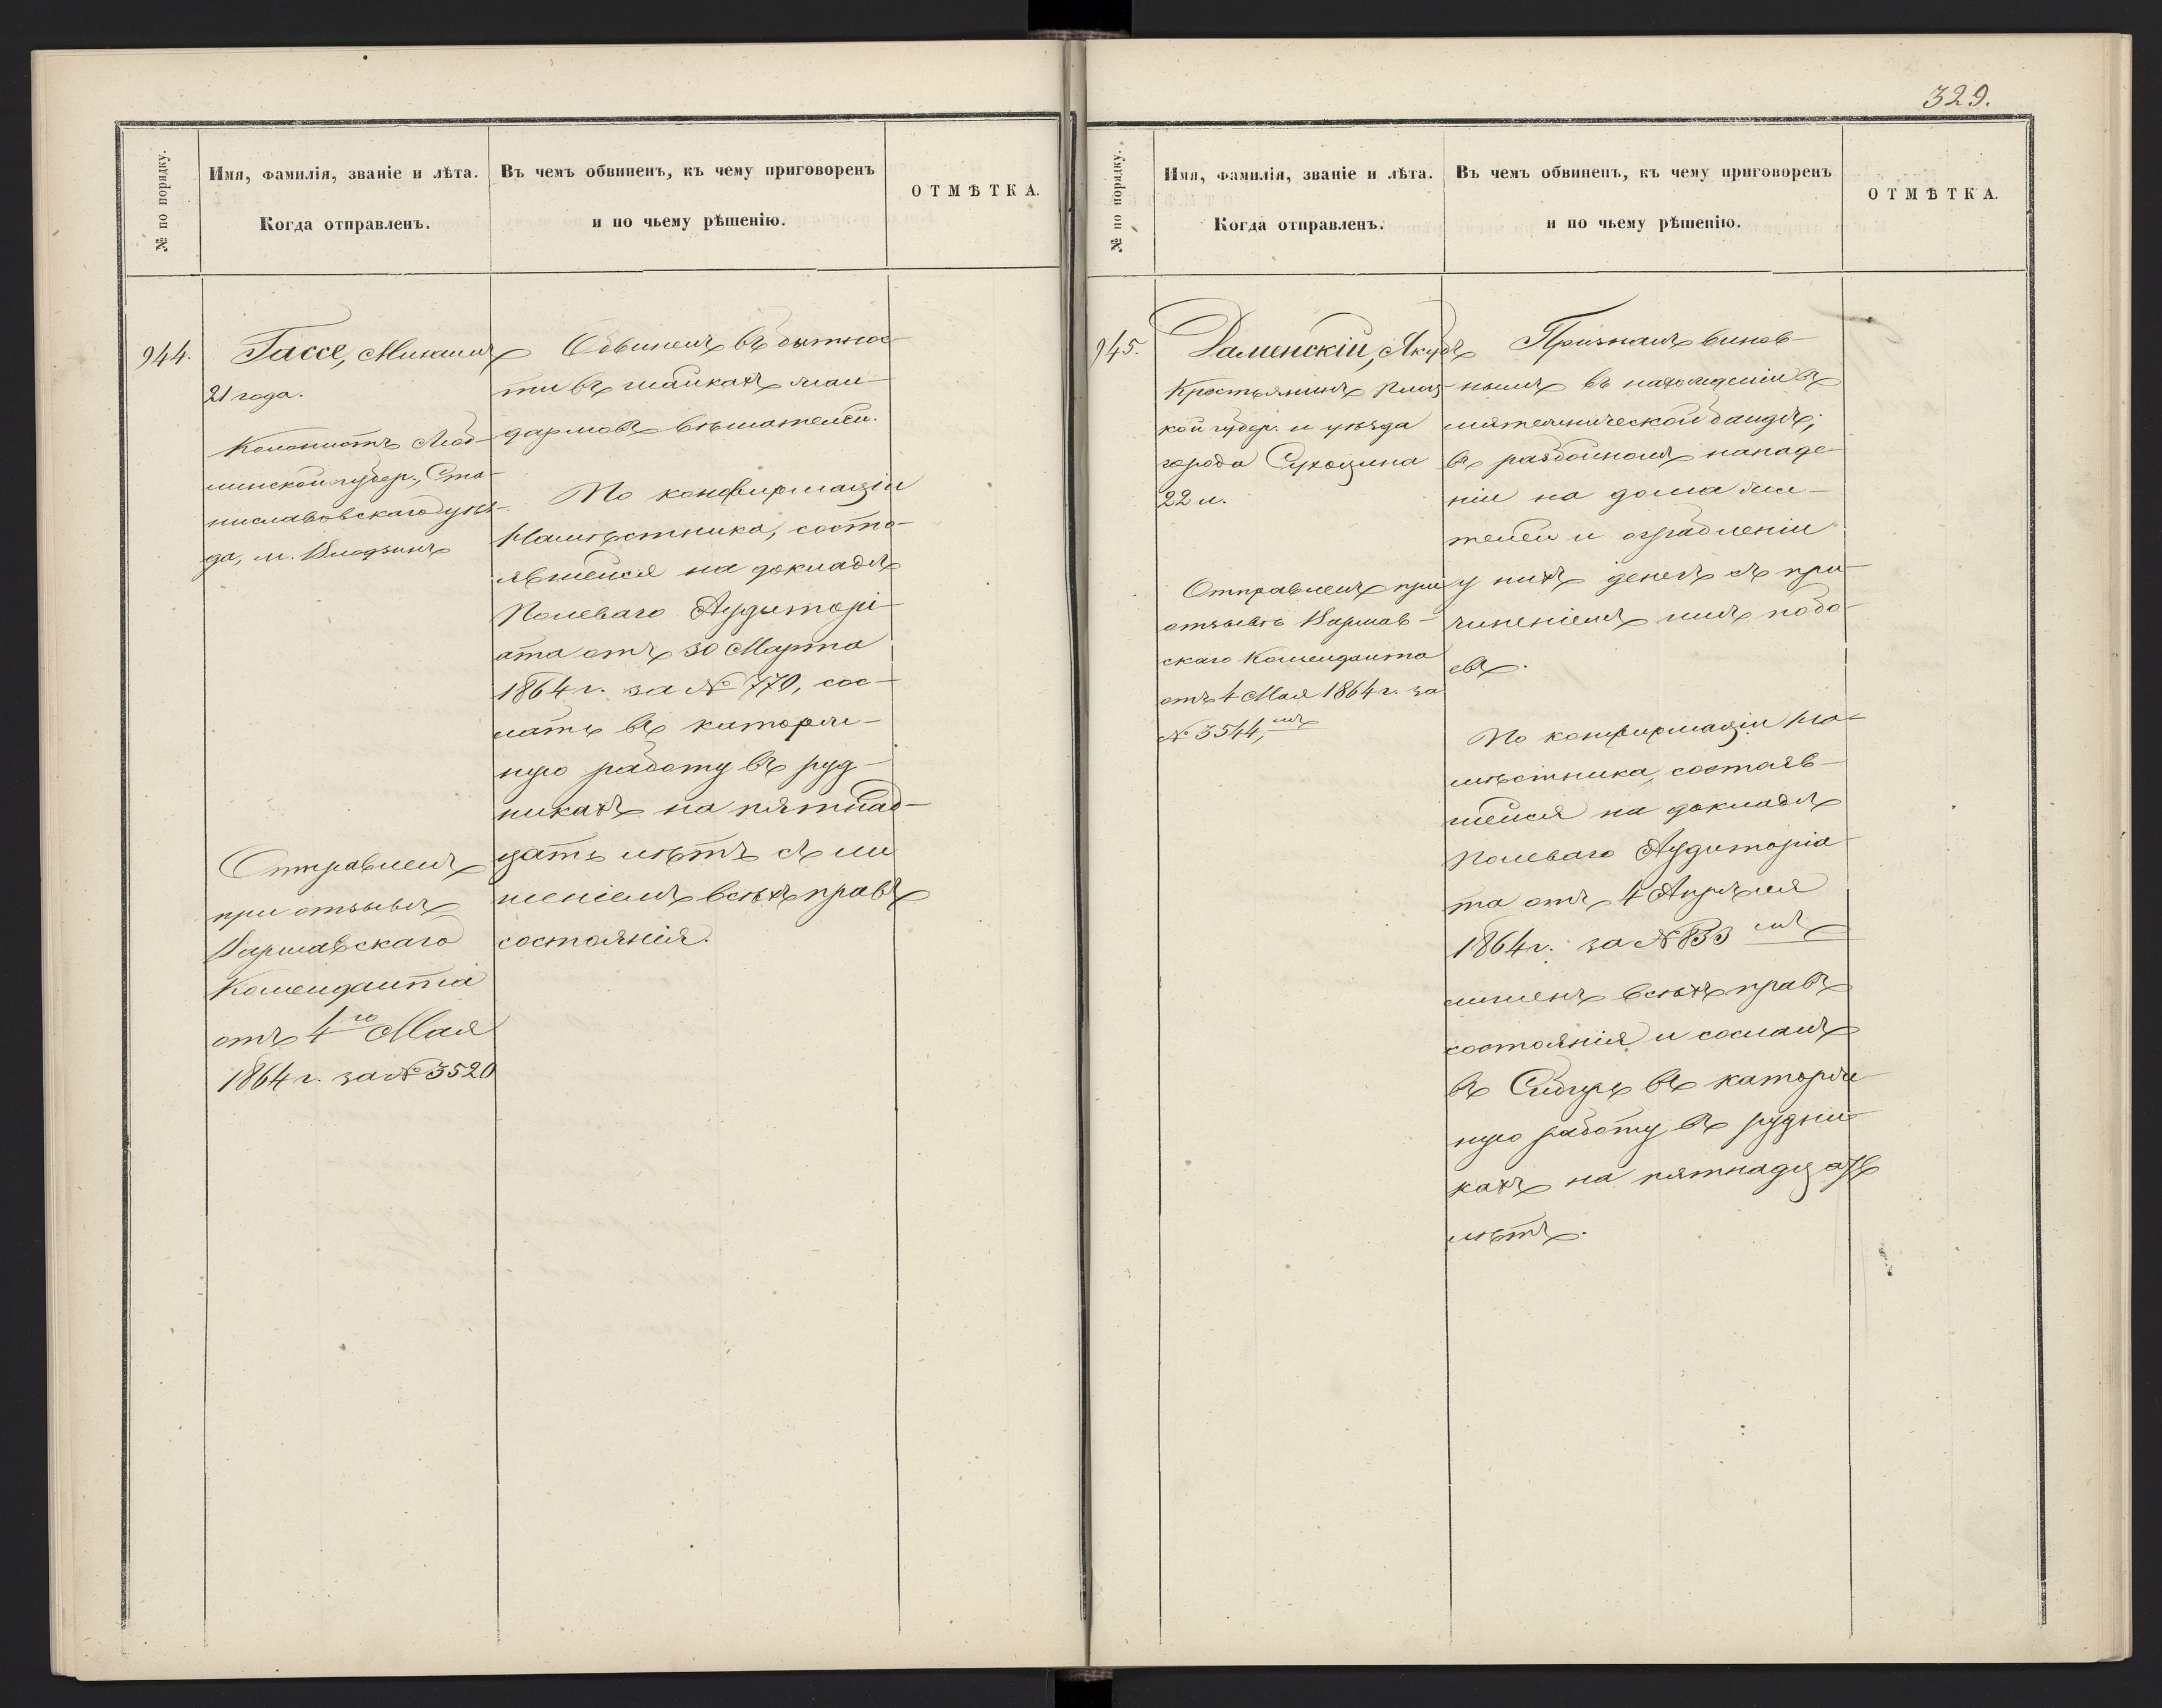 № по порядку.
Имя, фамилія, званіе и лѣта.
Когда отправленъ.
Въ чемъ обвиненъ, къ чему приговоренъ
и по чьему рѣшенію.
ОТМѢТКА.
944.
Гассе, Михаилъ
21 года.
Колонистъ Люб-
линской губер., Ста-
ниславовскаго уѣз-
да,
Отправленъ
при отзывѣ
Варшавскаго
Коменданта
отъ 4го Мая
1864 г. за № 3520
Обвиненъ въ бытнос-
ти въ шайкахъ жан-
дармовъ вѣшателей.
По конфирмаціи
Намѣстника, состо-
явшейся на докладѣ
Полеваго Аудиторі-
ата отъ 30 Марта
1864 г. за № 770, сос-
лать въ каторж-
ную работу въ руд-
никахъ на пятнад-
цать лѣтъ съ ли
шеніемъ всѣхъ правъ
состоянія.
329.
№ по порядку.
Имя, фамилія, званіе и лѣта.
Когда отправленъ.
Въ чемъ обвиненъ, къ чему приговоренъ
и по чьему рѣшенію.
ОТМѢТКА.
945.
Даменскій, Якубъ
Крестьянинъ Плоц-
кой губер. и уѣзда
города Сухоцина
22 л.
Отправленъ при
отзывѣ Варшав-
скаго Коменданта
отъ 4 Мая 1864 г. за
№ 3544,мъ
Признанъ винов-
нымъ въ нахожденіи въ
мятежнической бандѣ,
въ разбойномъ нападе-
ніи на дома жи-
телей и ограбленіи
у нихъ денегъ съ при-
чиненіемъ имъ побо-
евъ.
По конфирмаціи На-
мѣстника, состояв-
шейся на докладѣ
Полеваго Аудиторіа-
та отъ 4 Апрѣля
1864 г. за № 833 мъ
лишенъ всѣхъ правъ
состоянія и сосланъ
въ Сибирь въ каторж-
ную работу въ рудни-
кахъ на пятнадцать
лѣтъ.